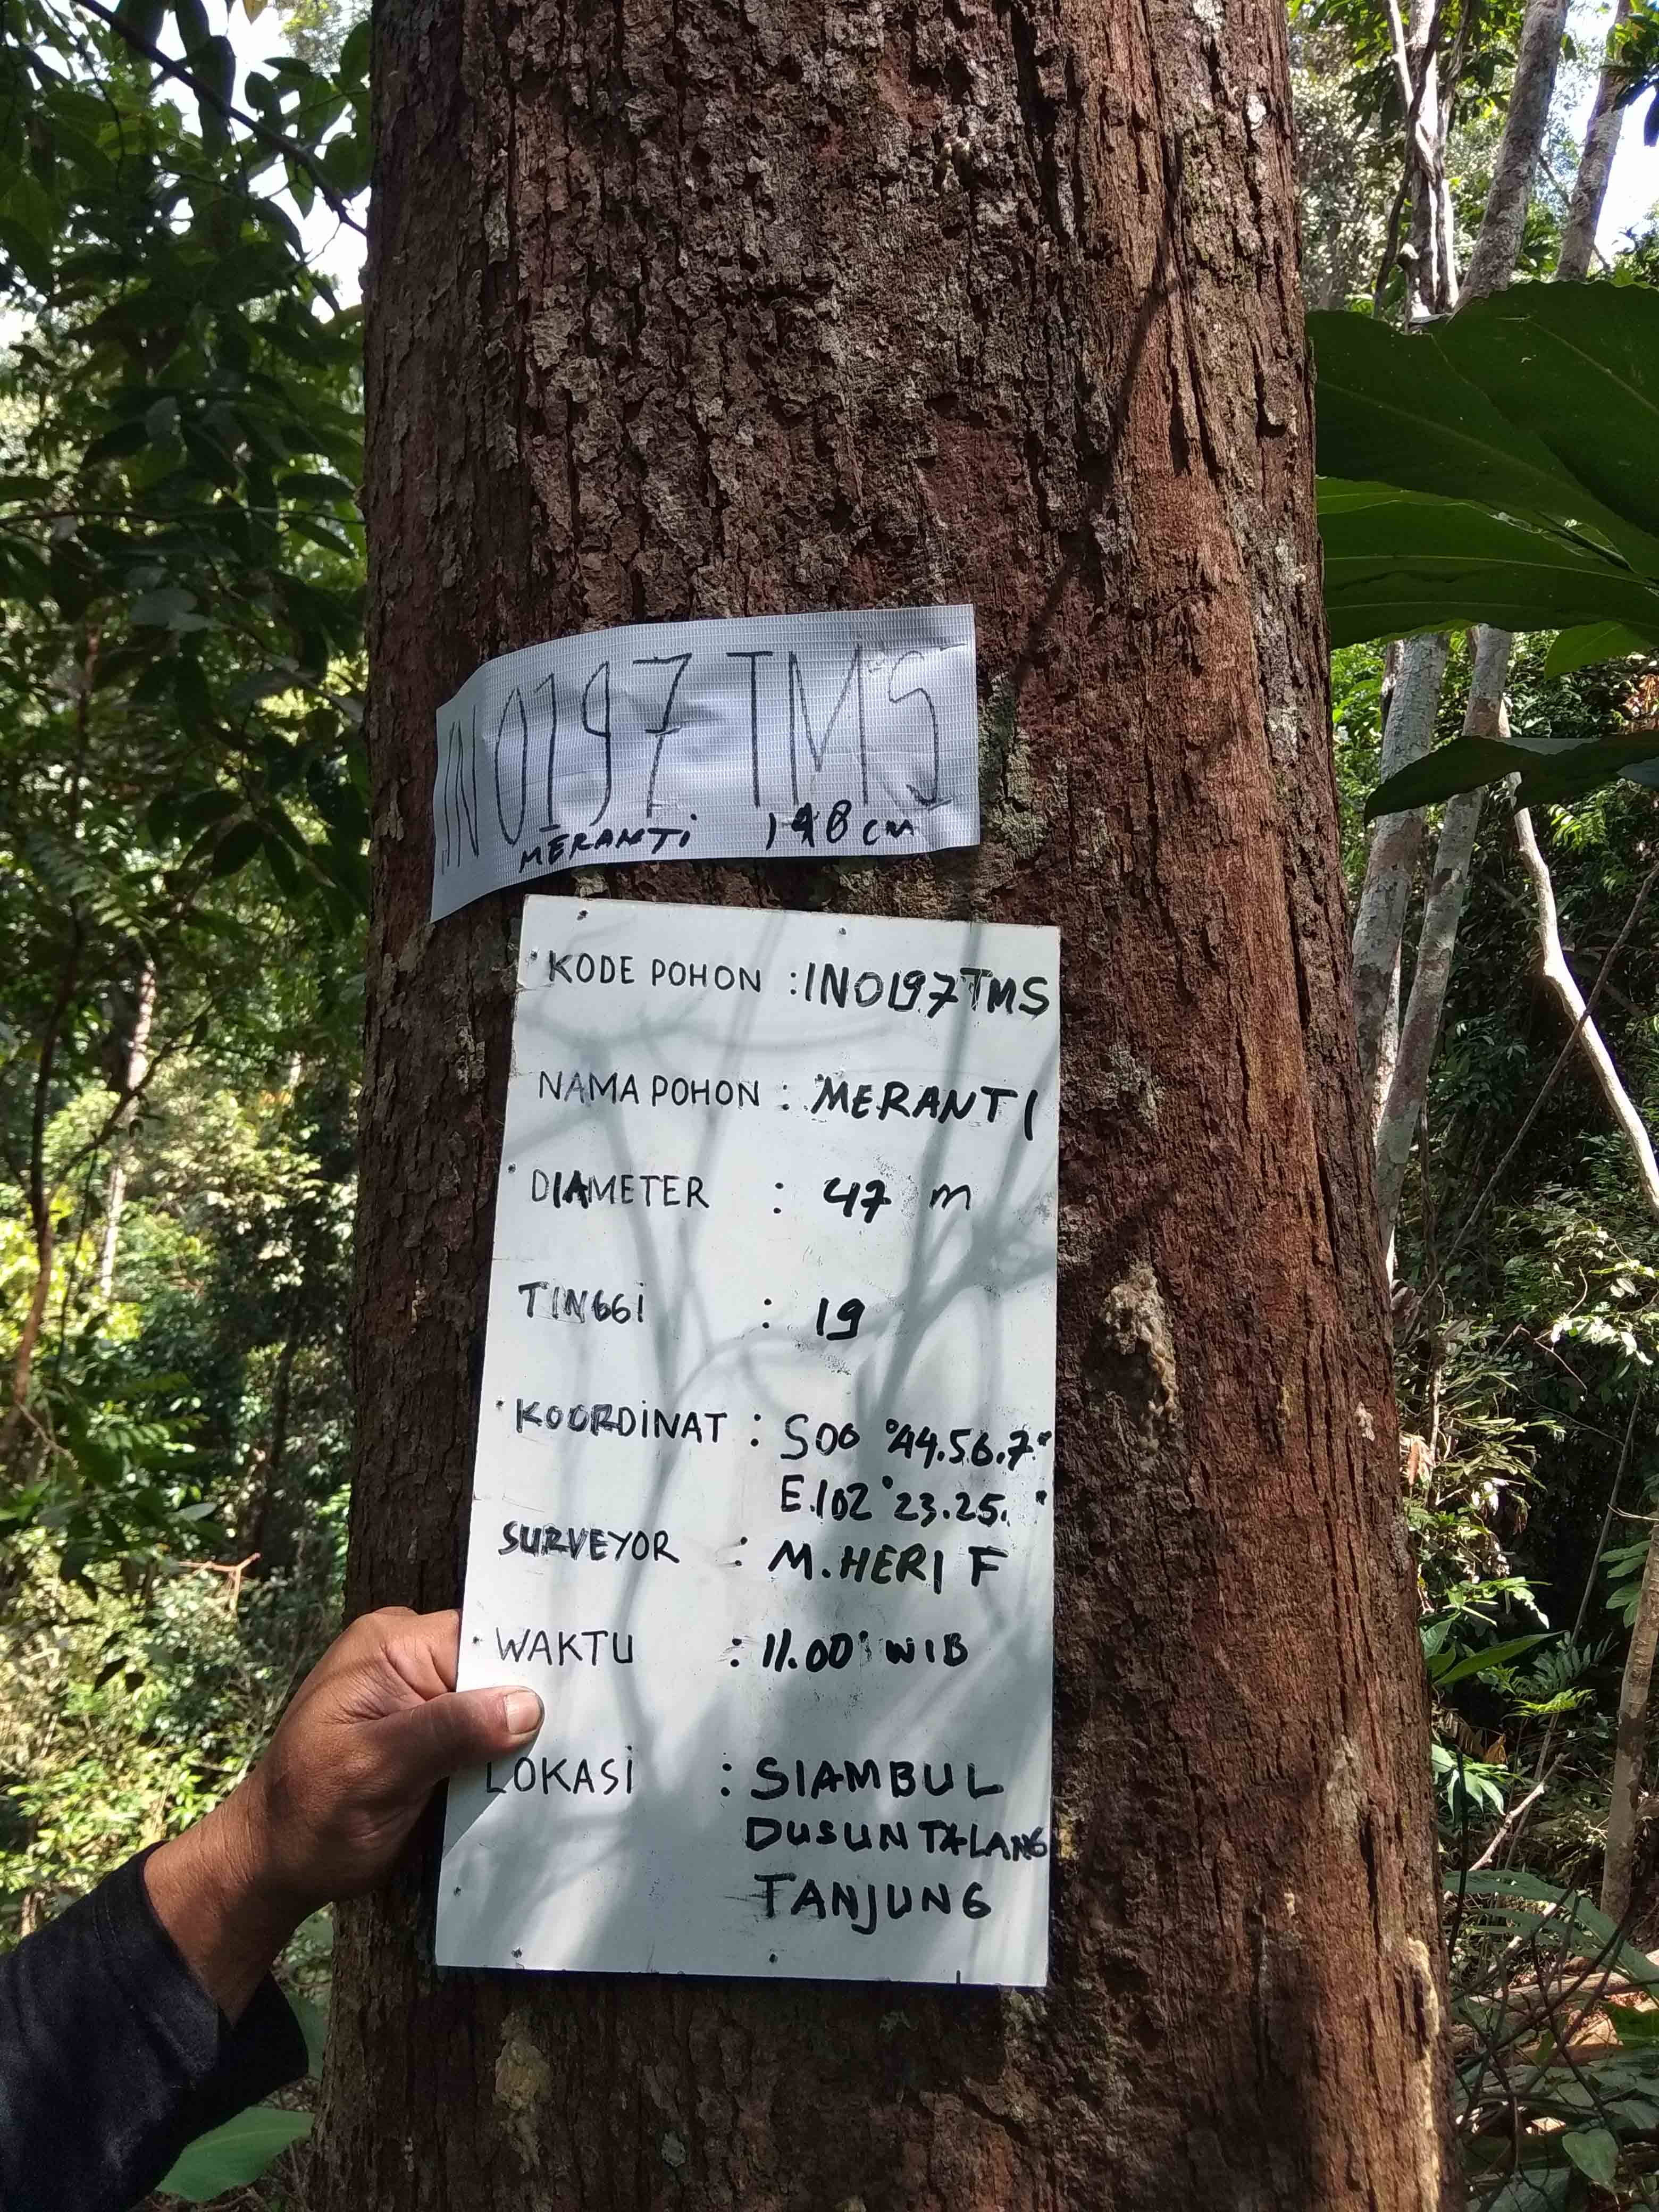 IN0197 TMS
MERANTI 148 CM
KODE POHON : IN0197TMS
NAMA POHON : MERANTI
DIAMETER : 47 m
TINGGI : 19
KOORDINAT : S00 °44.56.7"
E.102°23.25."
SURVEYOR : M.HERI F
WAKTU : 11.00 WIB
LOKASI : SIAMBUL
DUSUN TALANG
TANJUNG